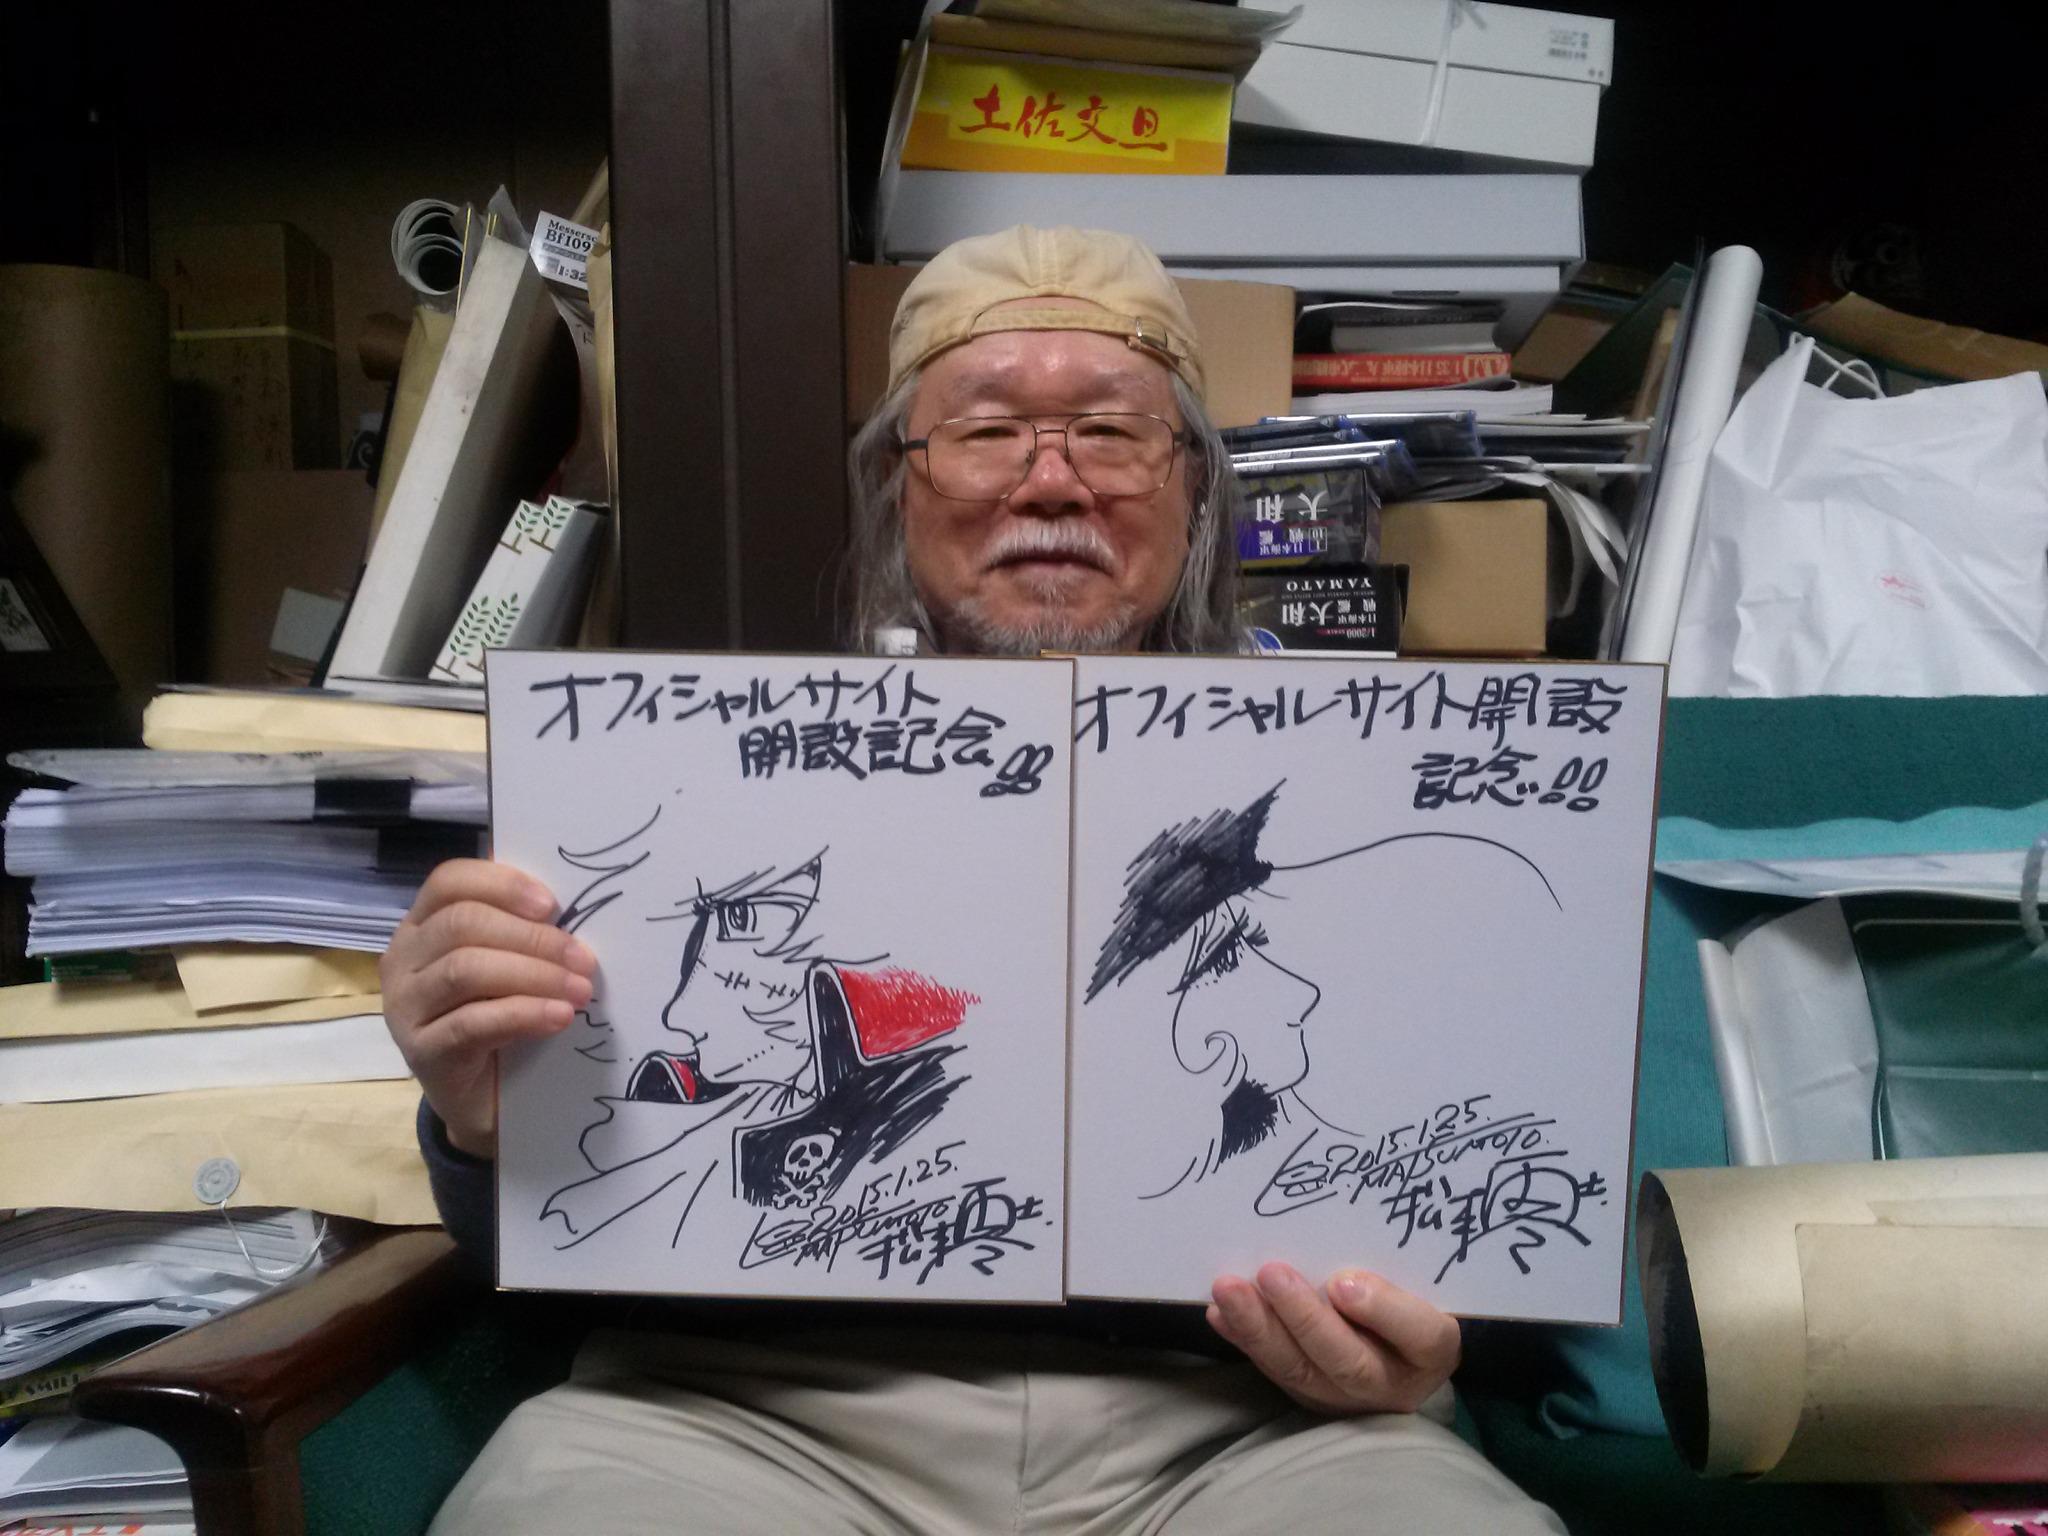 土佐文旦
Messersc
Bf109
1:32
大和
日本海軍
戦艦
YAMATO
日本海軍
戦艦
大和
1/2000
オフィシャルサイト
開設記念!!
2015.1.25.
MATSUMOTO
松本零士.
オフィシャルサイト開設
記念!!
2015.1.25.
MATSUMOTO.
松本零士.